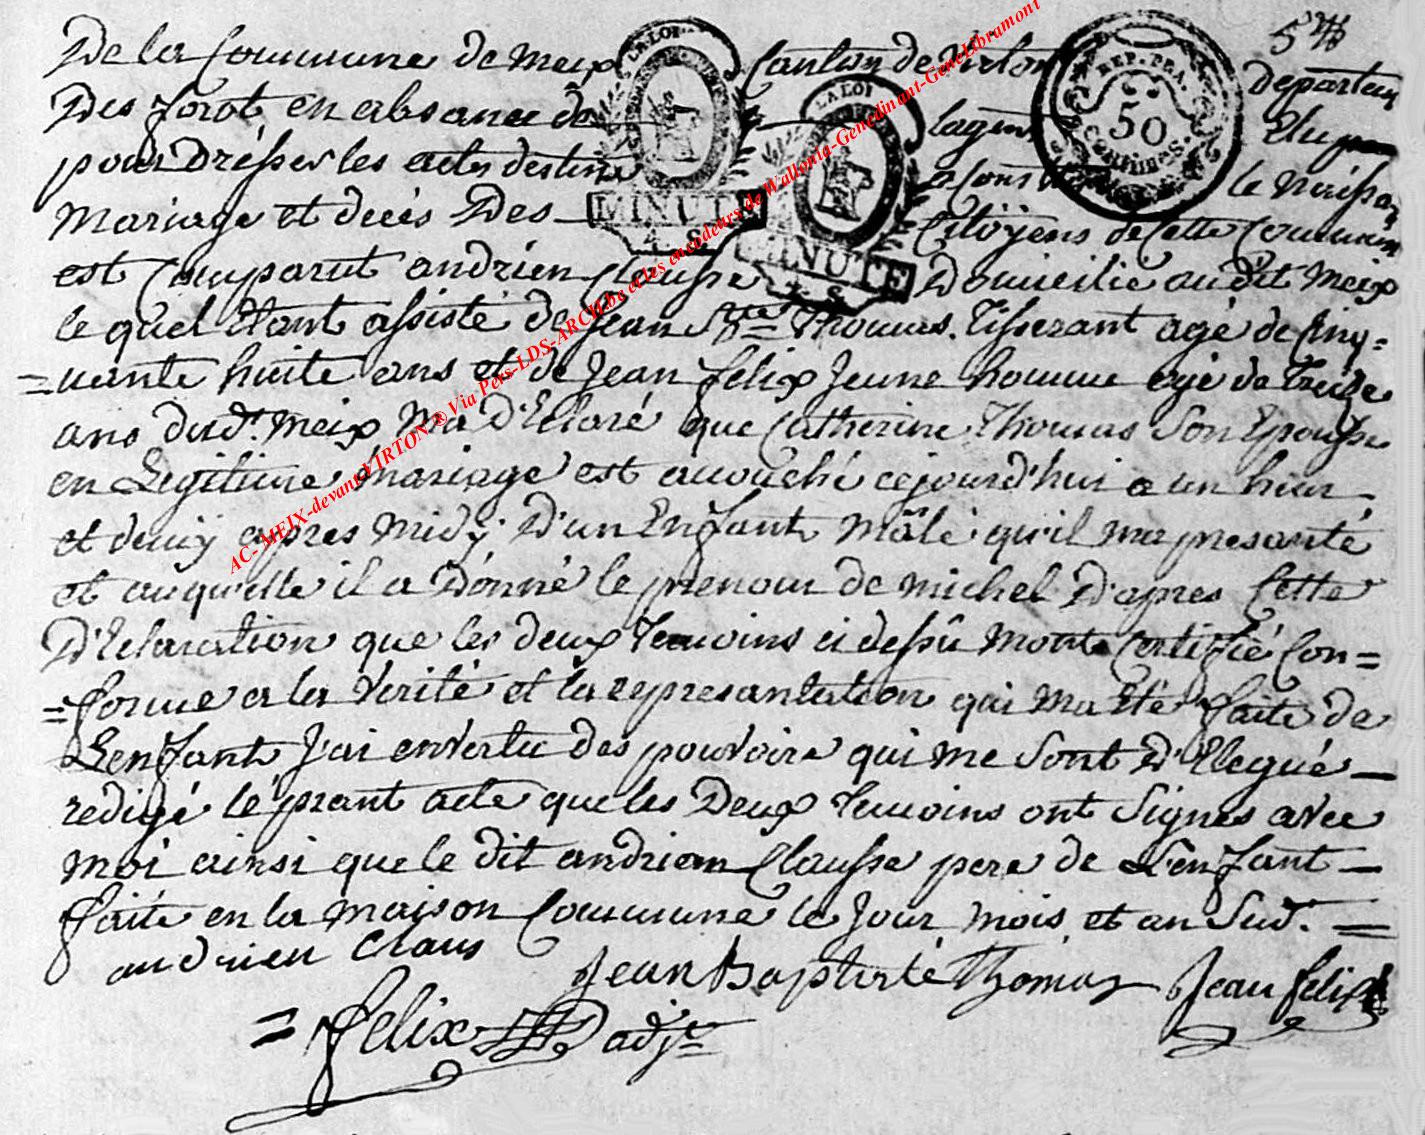 5tt
De la Commune de Meix Canton de Virton departem
Des forot en absance de lagent elu
pour Drésser les actes destine a Cons le Naissan
Mariage et decés Des Citöÿens de Cette Commune
est Comparut andrien Clausse Domicilié audit Meix
le quel Etant assisté de Jean Bte Thomas. Tisserant agé de Cinq=
=uante huite ans et de Jean felix Jeune homme agé de Treize
ans dudt. Meix Ma d'Eclaré que Catherine Thomas Son Epousse
en Legitime Mariage est acouché cejourd'hui a un heur
et demÿ apres Midÿ. D'un Enfant Mâle qu'il ma presanté
et auquelle il a Donné le prenom de Michel D'apres Cette
D'Eclaration que les deux Temoins ci dessû Mont Certifié Con=
=forme a la Verité et la represantation qui Ma Eté faite de
L'enfant J'ai envertu des pouvoire qui me Sont D'Elegué
redigé lé prant acte que les Deux Temoins ont Signes avec
Moi ainsi que le dit andrien Clausse pere de L'enfant
faite en la Maison Commune le Jour Mois et an Sud. =
andrien Claus
Jean Baptiste Thomas Jean felix
= felix adjt
LA LOI
MINUTE
4. S.
LA LOI
MINUTE
4. S.
REP. FRA.
50
CENTIMES.
AC- MEIX-devant-VIRTON ® Via Pers-LDS-ARCH.be et les encodeurs de Wallonia-Genedinant-GeneLibramont